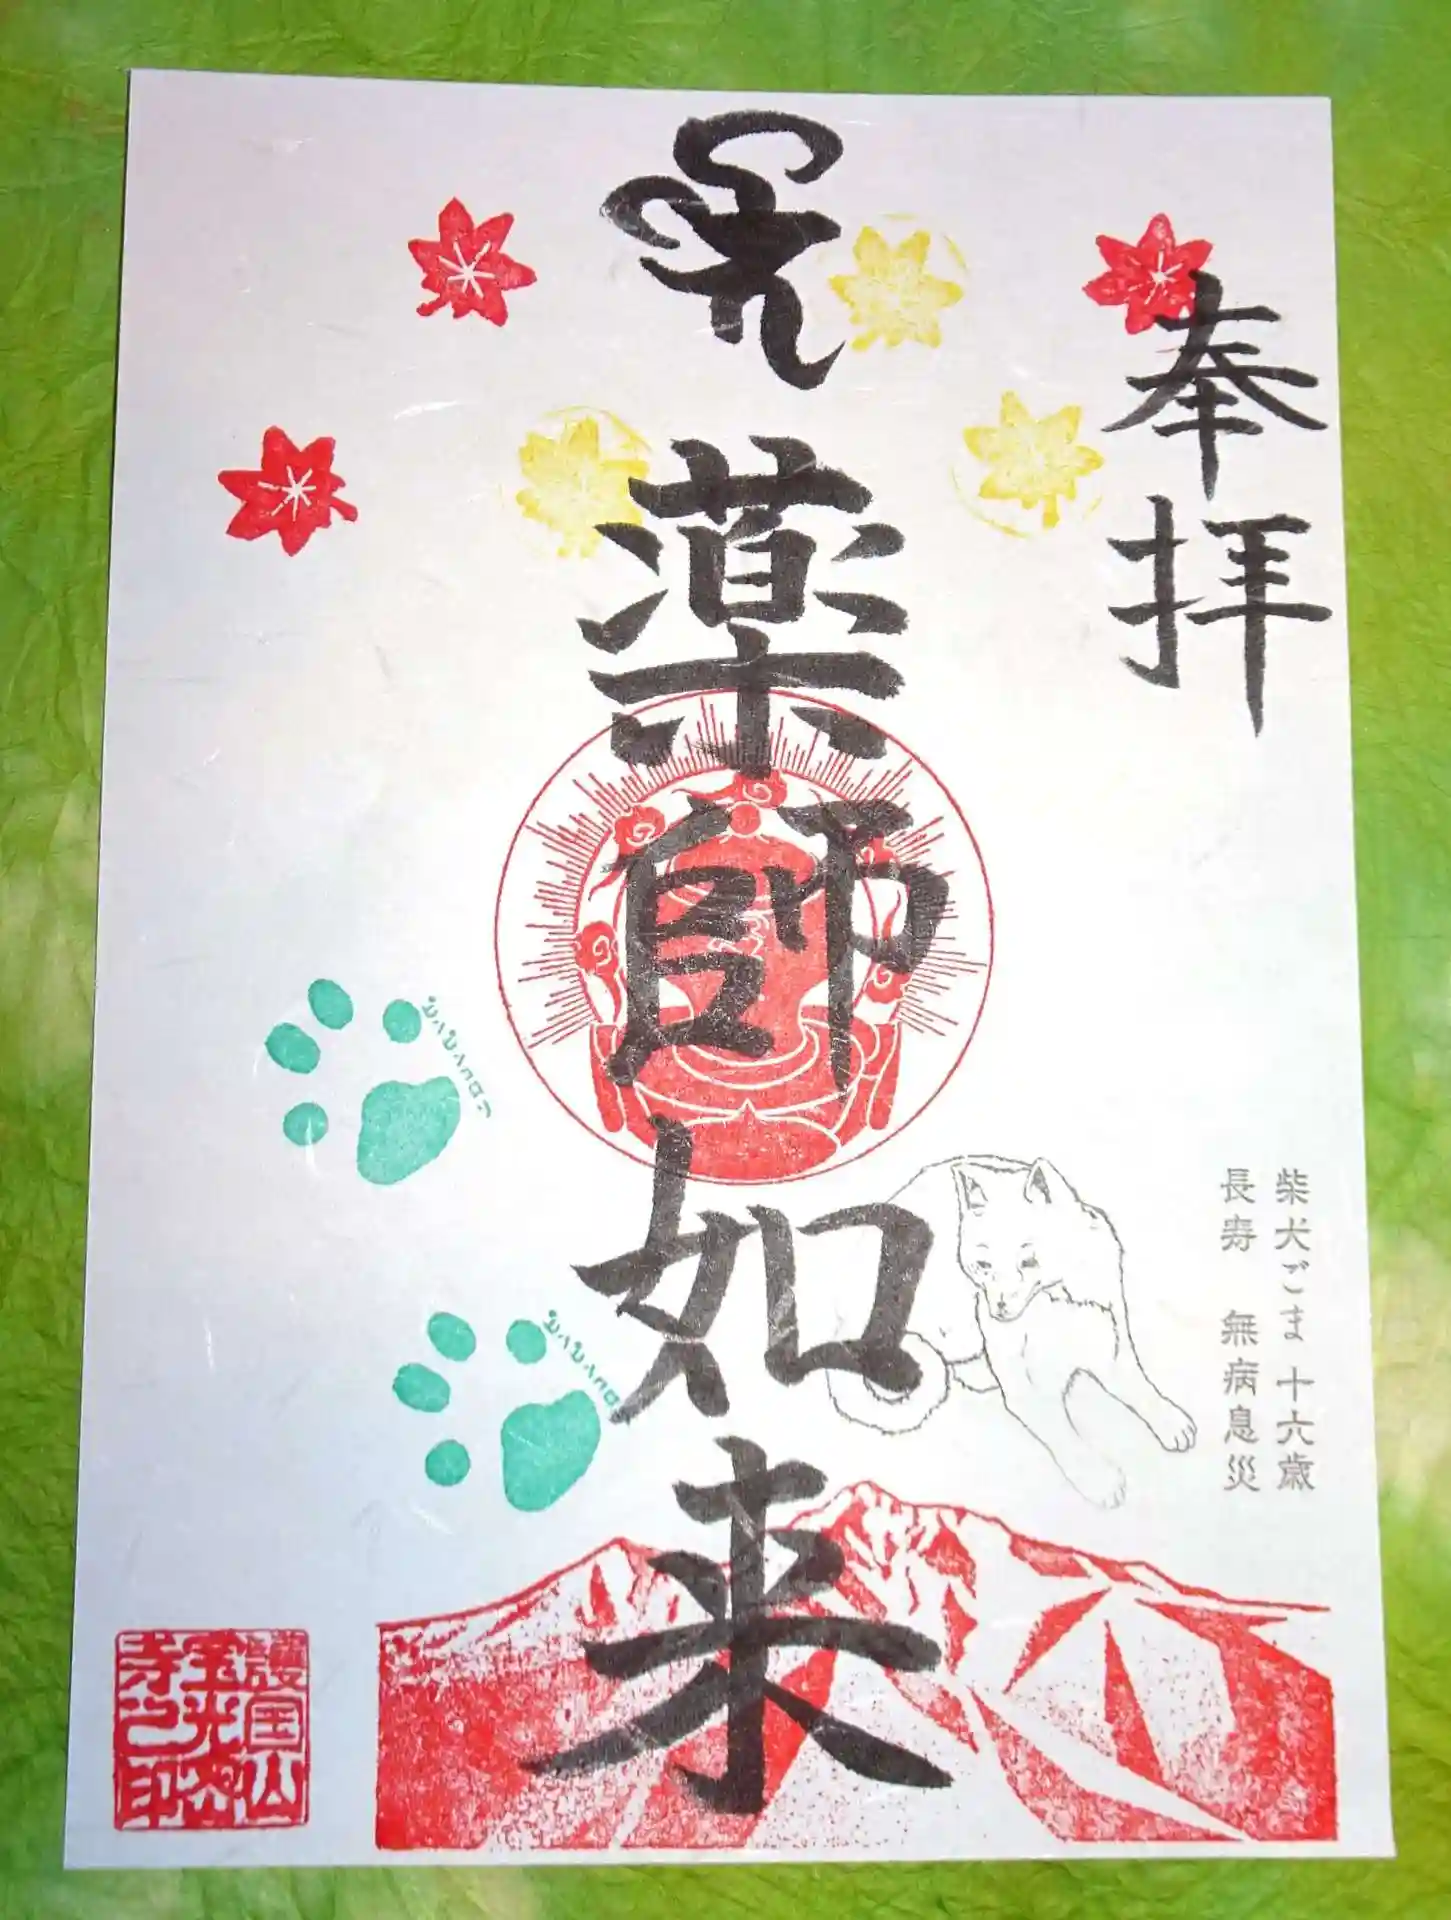 奉拝
薬師如来
柴犬ごま 十六歳
長寿 無病息災
護国山
宝光
寺之印